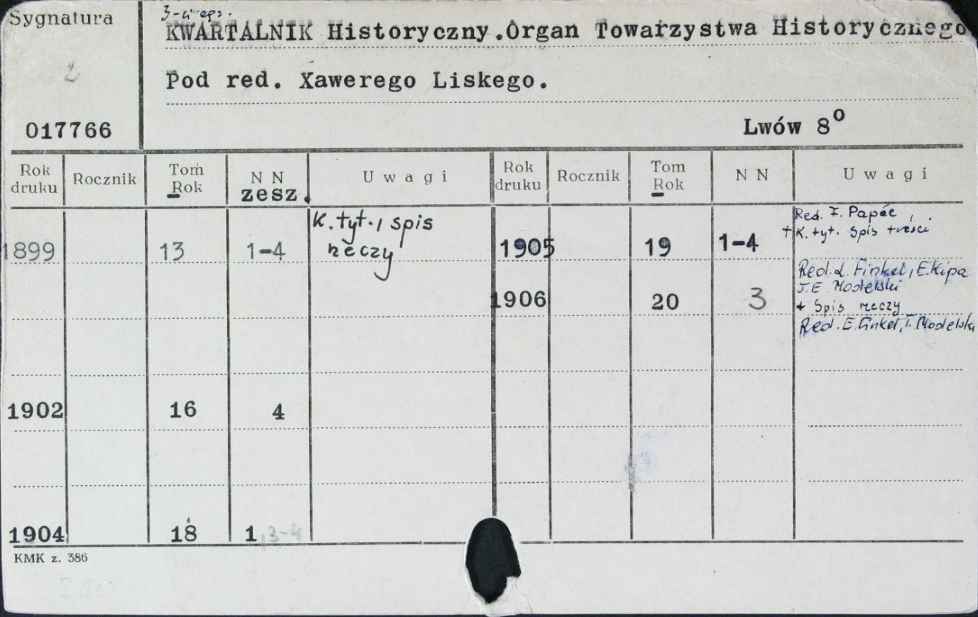 Sygnatura
KWARTALNIK Historyczny.Organ Towarzystwa Historycznego
Pod red. Xawerego Liskego.
2
017766
Lwów 8⁰
Rok druku Rocznik Tom Rok N N zesz. Uwagi Rok druku Rocznik Tom Rok N N Uwagi
1899 13 1-4 K. tyt., spis rzeczy
1905 19 1-4 Red. F. Papée,
+ K. tyt. Spis treści
Red. L. Finkel, E. Kipa
T.E. Modelski
1906 20 3 + Spis rzeczy
Red. E. Finkel, T. Modelski
1902 16 4
1904 18 1,3-4
KMK z. 386